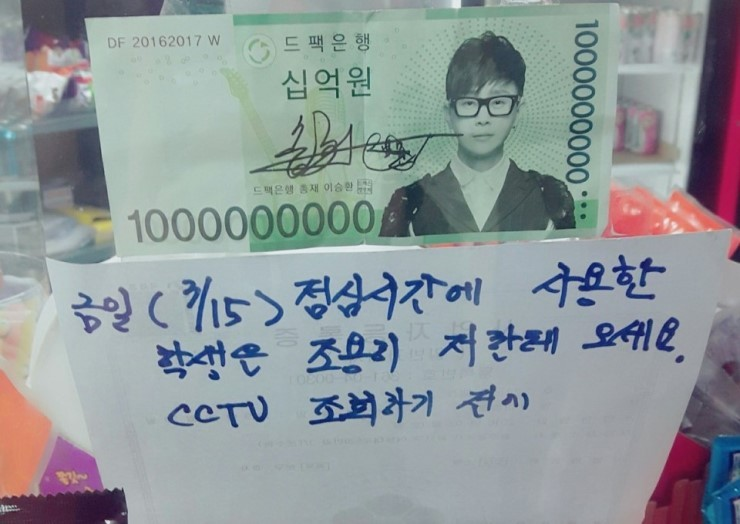 DF 20162017 W
드팩은행
십억원
1000000000
드팩은행 총재 이승환
1000000000
금일 (3/15) 점심시간에 사용한
학생은 조용히 저한테 오세요.
CCTV 조회하기 전에